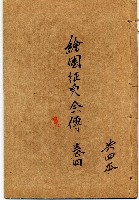 繪圖征東全傳 卷四
共四本